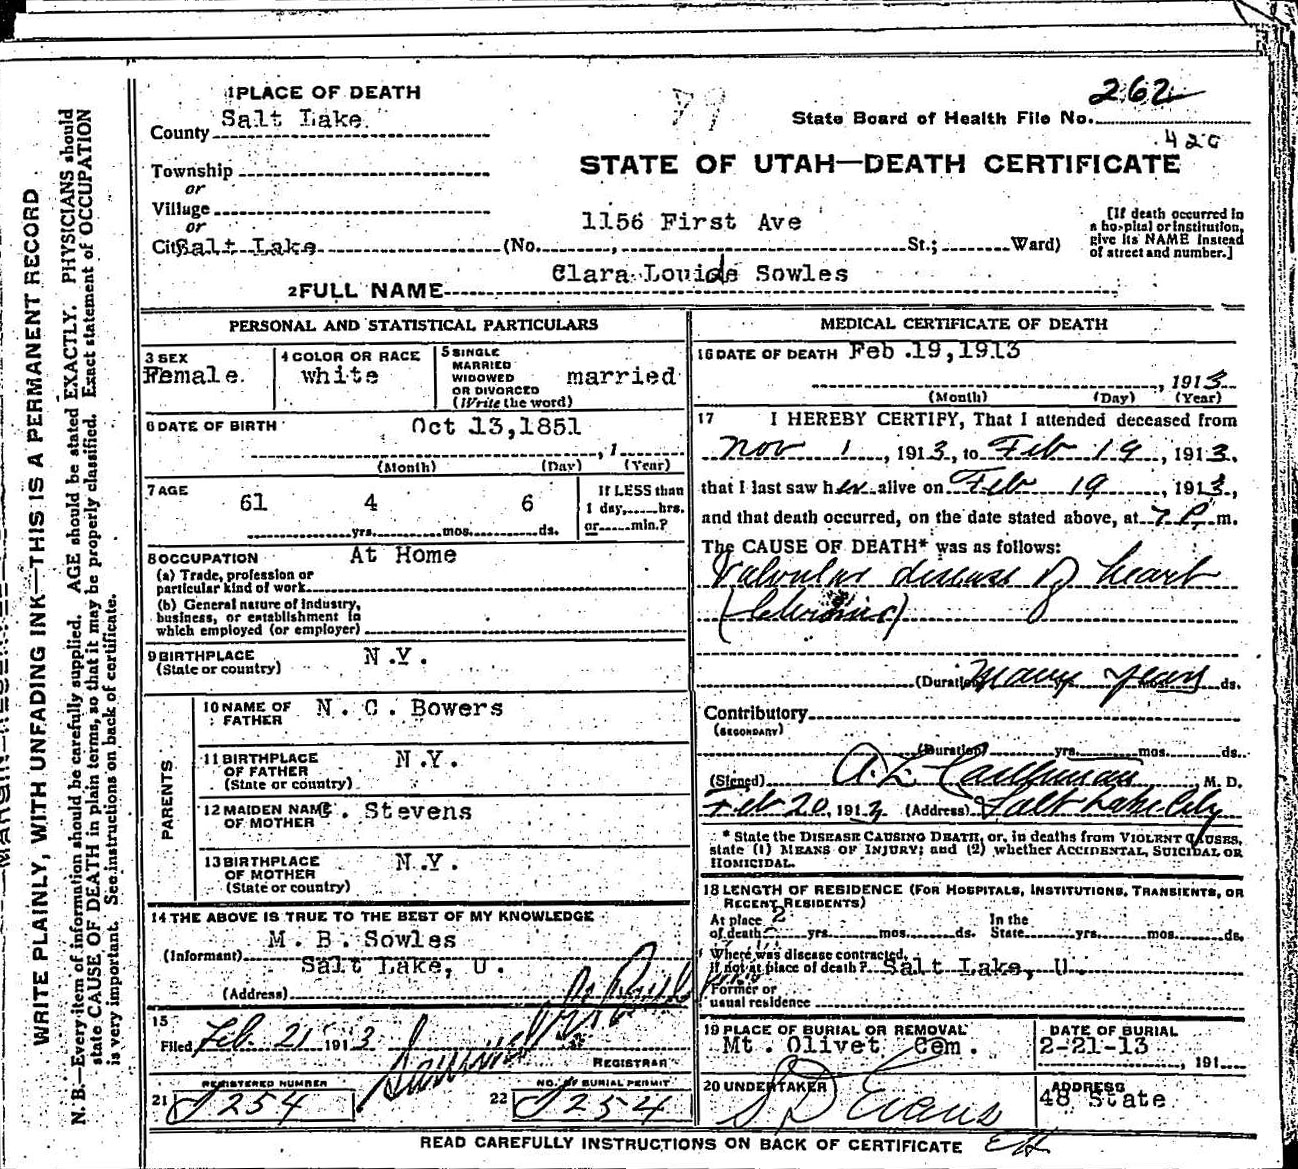 262
State Board of Health File No.
420
1 PLACE OF DEATH
County Salt Lake
STATE OF UTAH—DEATH CERTIFICATE
Township
or
Village
or
City Salt Lake (No. 1156 First Ave St.; Ward)
[If death occurred in
a hospital or institution,
give its NAME instead
of street and number.]
2 FULL NAME Clara Louide Sowles
PERSONAL AND STATISTICAL PARTICULARS
3 SEX
Female.
4 COLOR OR RACE
white
5 SINGLE
MARRIED
WIDOWED
OR DIVORCED
(Write the word)
married
6 DATE OF BIRTH Oct 13,1851
, 1
(Month) (Day) (Year)
7 AGE
61 yrs. 4 mos. 6 ds.
If LESS than
1 day, hrs.
or min.?
8 OCCUPATION At Home
(a) Trade, profession or
particular kind of work
(b) General nature of industry,
business, or establishment in
which employed (or employer)
9 BIRTHPLACE
(State or country) N.Y.
PARENTS
10 NAME OF
FATHER N. C. Bowers
11 BIRTHPLACE
OF FATHER
(State or country) N.Y.
12 MAIDEN NAME
OF MOTHER . Stevens
13 BIRTHPLACE
OF MOTHER
(State or country) N.Y.
14 THE ABOVE IS TRUE TO THE BEST OF MY KNOWLEDGE
(Informant) M. B. Sowles
(Address) Salt Lake, U.
15
Filed Feb. 21 1913
REGISTRAR
REGISTERED NUMBER
21 J254
NO. OF BURIAL PERMIT
22 J254
MEDICAL CERTIFICATE OF DEATH
16 DATE OF DEATH Feb .19,1913
, 1913
(Month) (Day) (Year)
17 I HEREBY CERTIFY, That I attended deceased from
Nov 1, 1913, to Feb 19, 1913,
that I last saw her alive on Feb 19, 1913,
and that death occurred, on the date stated above, at 7 P. m.
The CAUSE OF DEATH* was as follows:
Valvular disease of heart
(Chronic)
(Duration) Many years ds.
Contributory
(SECONDARY)
(Duration) yrs. mos. ds.
(Signed) A. L. Cauffman M. D.
Feb 20, 1913 (Address) Salt Lake City
* State the DISEASE CAUSING DEATH, or, in deaths from VIOLENT CAUSES,
state (1) MEANS OF INJURY; and (2) whether ACCIDENTAL, SUICIDAL OR
HOMICIDAL.
18 LENGTH OF RESIDENCE (FOR HOSPITALS, INSTITUTIONS, TRANSIENTS, OR
RECENT RESIDENTS)
At place 2
of death yrs. mos. ds.
In the
State yrs. mos. ds.
Where was disease contracted,
if not at place of death? Salt Lake, U.
Former or
usual residence
19 PLACE OF BURIAL OR REMOVAL
Mt. Olivet Cem.
DATE OF BURIAL
2-21-13
, 191
20 UNDERTAKER
S D Evans
ADDRESS
48 State
READ CAREFULLY INSTRUCTIONS ON BACK OF CERTIFICATE
WRITE PLAINLY, WITH UNFADING INK—THIS IS A PERMANENT RECORD
N. B.—Every item of information should be carefully supplied. AGE should be stated EXACTLY. PHYSICIANS should
state CAUSE OF DEATH in plain terms, so that it may be properly classified. Exact statement of OCCUPATION
is very important. See instructions on back of certificate.